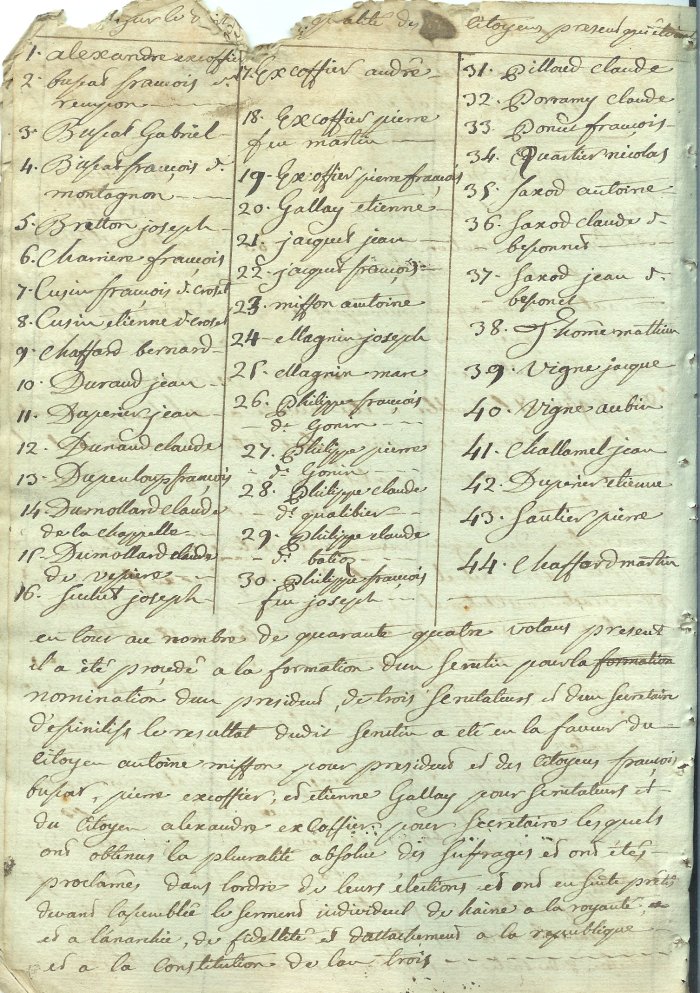 qualité des Citoyens present qui
1. alexandre excoffier
2 buscat francois d.
remyson
3. Buscat Gabriel
4. Buscat françois d.
montagnon
5. Bretton joseph
6. Charriere françois
7. Cusin françois d. croset
8. Cusin etienne d. croset
9. Chaffard bernard
10. Durand jean
11. Duperier jean
12. Dunand claude
13. Dupenloup françois
14. Dumollard claude
de la chappelle
15. Dumollard claude
de
16. joseph
17. Excoffier andré
18. Excoffier pierre
feu martin
19. Excoffier pierre françois
20. Gallay etienne
21. jacquet jean
22. jacquet françois
23. miffon antoine
24. Magnin joseph
25. Magnin marc
26. Philippe françois
dt Gonin
27. Philippe pierre
dt Gonin
28. Philippe claude
dt qualibier
29. Philippe claude
dt
30. Philippe françois
feu joseph
31. Pilloud claude
32. Porramy claude
33. Ponset francois
34. Quartier nicolas
35. Saxod antoine
36. Saxod claude d.
besonnet
37. Saxod jean d.
besonet
38. Thome mathieu
39. Vigne jacque
40. Vigne aubin
41. Challamel jean
42. Duperier etienne
43. Sautier pierre
44. Chaffard martin
en tout au nombre de quarante quatre votans present
il a été procédé a la formation dun scrutin pour la formation
nomination dun president, de trois scrutateurs et dun secretaire
definitifs le resultat dudit scrutin a eté en la faveur du
Citoyen antoine miffon pour president et des Citoyens françois
buscat, pierre excoffier, et etienne Gallay pour scrutateurs et
du Citoyen alexandre exCoffier pour secretaire lesquels
ont obtenus la pluralité absolue des suffrages et ont étés
proclamés dans lordre de leurs élections et ont ensuite pretés
devant lasemblée le serment individuel de haine a la royauté
et a lanarchie, de fidellité et dattachement a la republique
et a la Constitution de lan trois